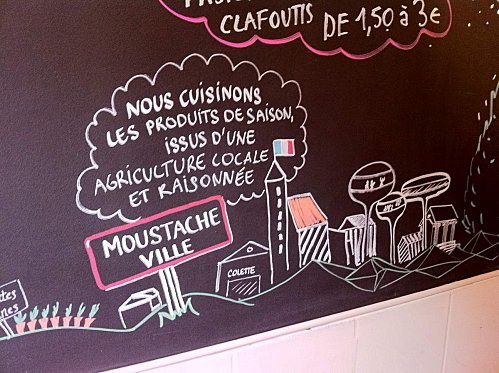 CLAFOUTIS DE 1,50 à 3€
NOUS CUISINONS
LES PRODUITS DE SAISON,
ISSUS D'UNE
AGRICULTURE LOCALE
ET RAISONNÉE
MOUSTACHE
VILLE
COLETTE